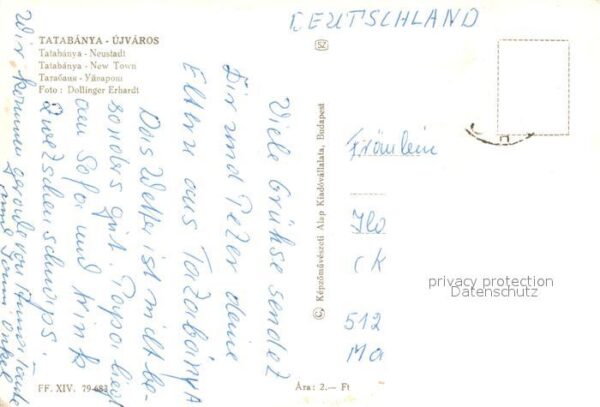 DEUTSCHLAND
TATABÁNYA - ÚJVÁROS
Tatabánya - Neustadt
Tatabánya - New Town
Татабаня - Уйварош
Foto : Dollinger Erhardt
Viele Grühse sendet
Dir und Peter deine
Eltern aus Tatabánya
Das Wetter ist nicht be-
sonders gut. Papa liegt
am Sofa und trinkt
Zwetschenschnaps.
Wir kommen gerade von Tante
und Onkel
© Képzőművészeti Alap Kiadóvállalata, Budapest
SZ
Fräulein
Ilo
CK
512
Ma
privacy protection
Datenschutz
FF. XIV. 79-683
Ára : 2.— Ft